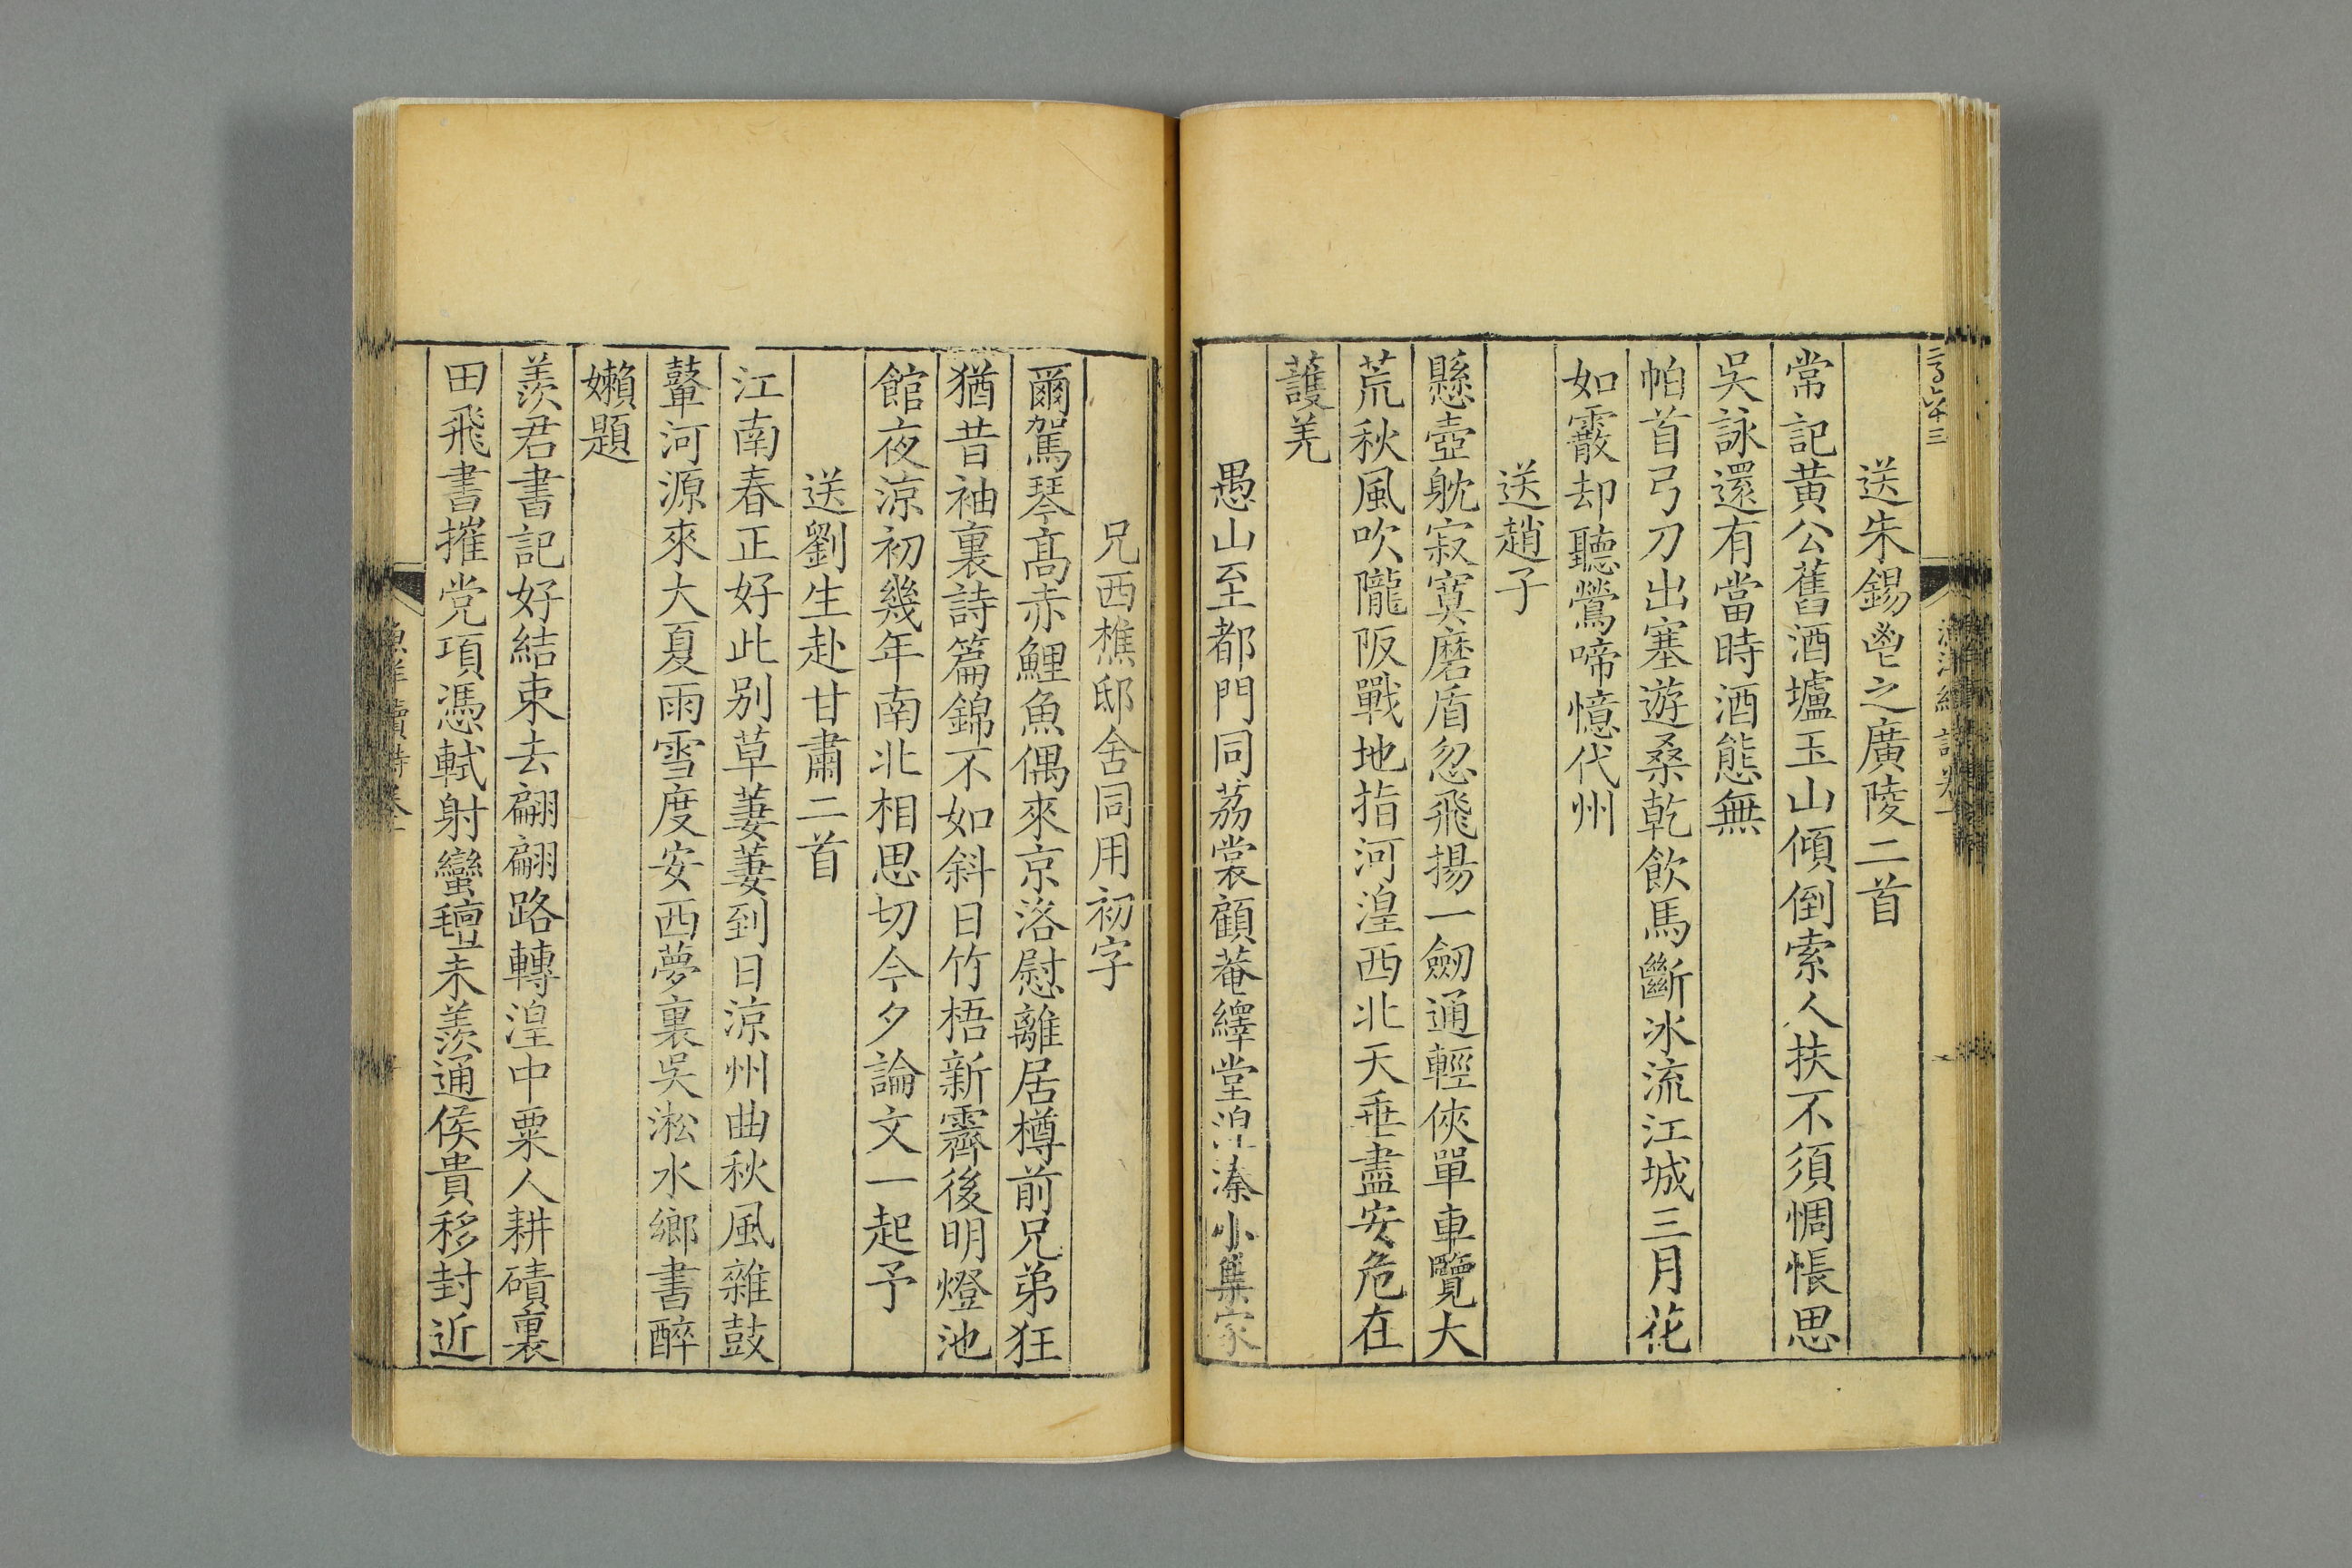 送朱錫鬯之廣陵二首
常記黃公舊酒壚玉山傾倒索人扶不須惆悵思
吳詠還有當時酒態無
帕首弓刀出塞遊桑乾飲馬斷冰流江城三月花
如霰却聽鶯啼憶代州
送趙子
懸壺躭寂寞磨盾忽飛揚一劒通輕俠單車覽大
荒秋風吹隴阪戰地指河湟西北天垂盡安危在
護羌
愚山至都門同荔裳顧菴繹堂洎溱小集家
兄西樵邸舍同用初字
爾駕琴高赤鯉魚偶來京洛慰離居樽前兄弟狂
猶昔袖裏詩篇錦不如斜日竹梧新霽後明燈池
館夜涼初幾年南北相思切今夕論文一起予
送劉生赴甘肅二首
江南春正好此别草萋萋到日涼州曲秋風雜鼓
鼙河源來大夏雨雪度安西夢裏吳淞水鄉書醉
嬾題
羨君書記好結束去翩翩路轉湟中粟人耕磧裏
田飛書摧党項憑軾射蠻氊未羨通侯貴移封近
漁洋續詩卷